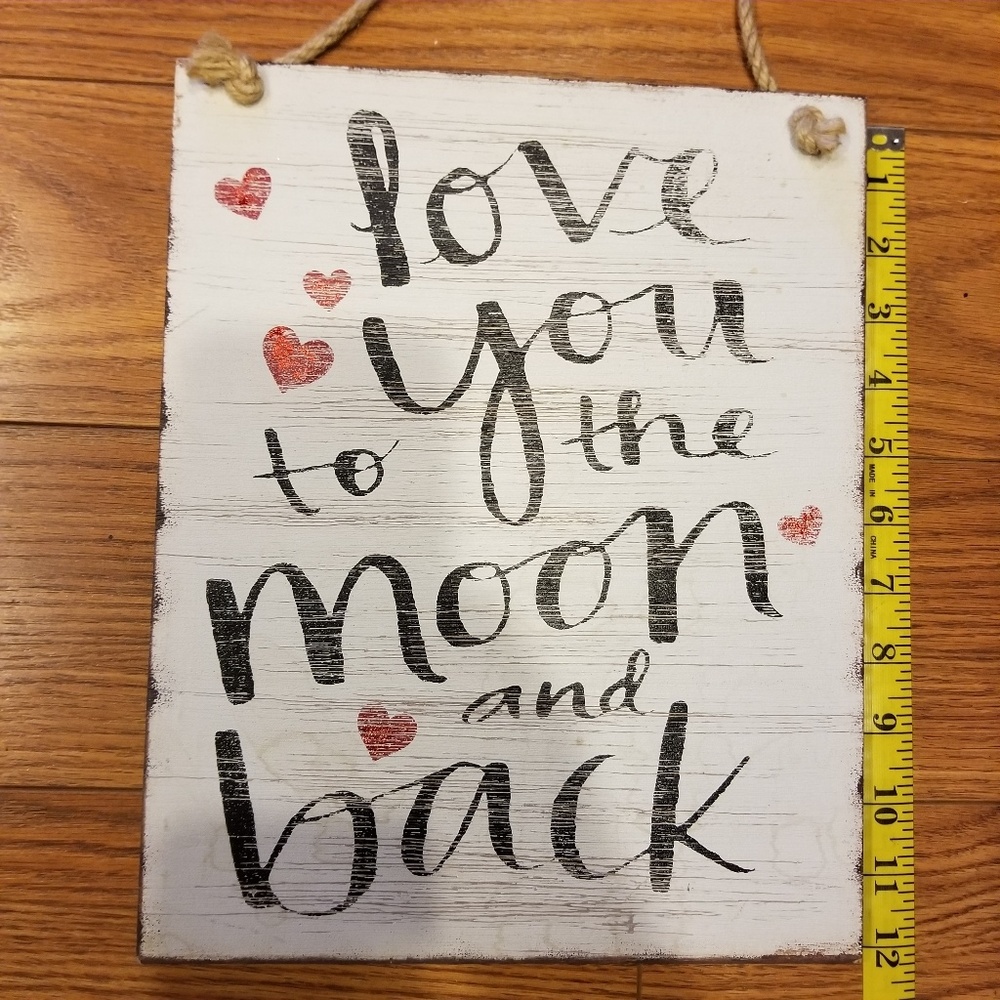 love
you
to the
moon
and
back
1
2
3
4
5
MADE IN
6
CHINA
7
8
9
10
11
12